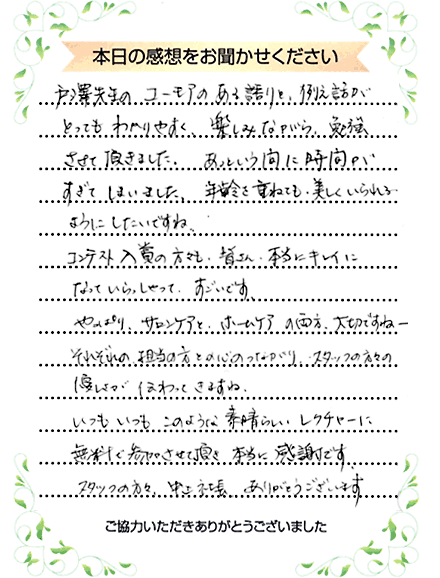 本日の感想をお聞かせください
戸澤先生の ユーモアの ある 語りと、例え話が
とっても わかりやすく、楽しみながら、勉強
させて 頂きました。 あっという間に 時間が
すぎて しまいました。 年齢を重ねても、美しくいられる
ようにしたいですね。
コンテスト入賞の方々も、皆さん、本当にキレイに
なって いらっしゃって、すごいです。
やっぱり、サロンケアと、ホームケア の両方、大切ですねー
それぞれの、担当の方との心のつながり、スタッフの方々の
優しさが 伝わって きますね。
いつも いつも このような 素晴らしい レクチャーに
無料で 参加させて頂き 本当に 感謝です。
スタッフの方々、社長、ありがとうございます
ご協力いただきありがとうございました